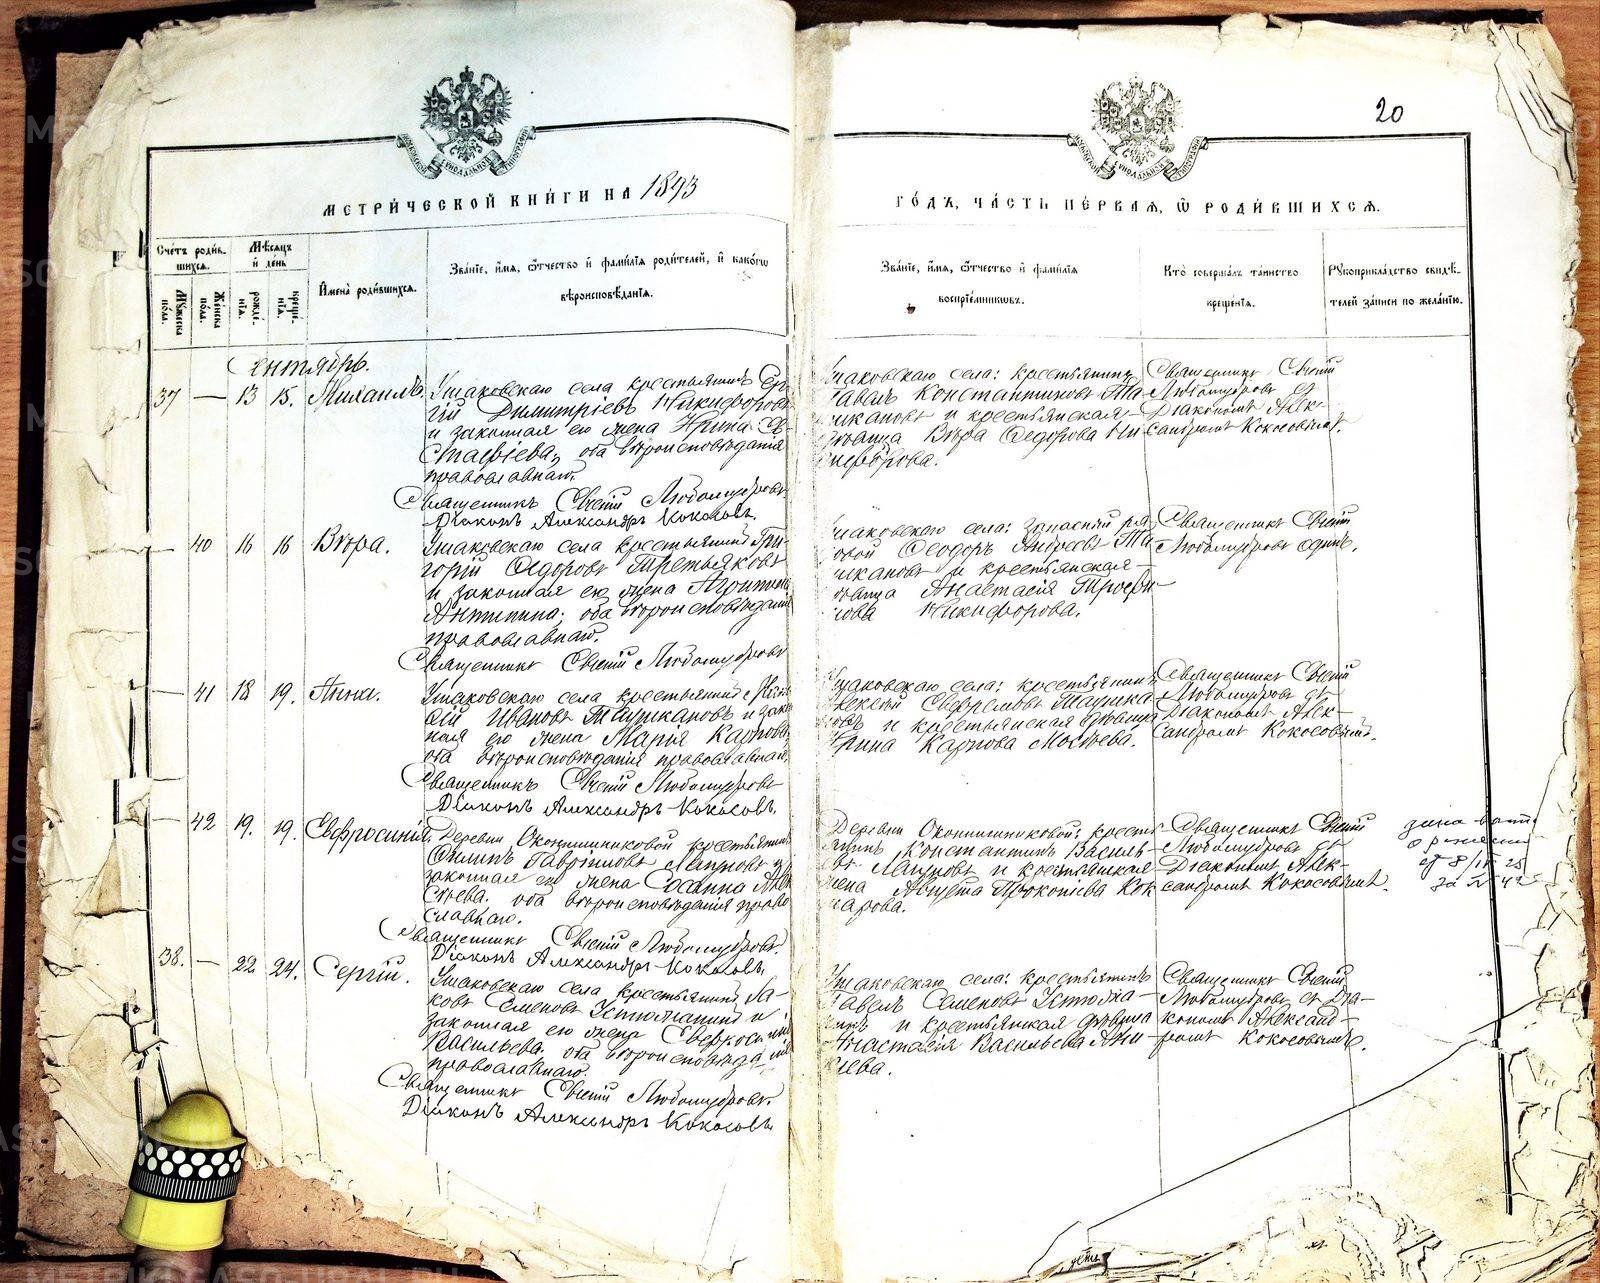 20
МЕТРИ́ЧЕСКОЙ КНИ́ГИ НА 1893
ГО́ДЪ, ЧА́СТЬ ПЕ́РВАЯ, Ѡ РОДИ́ВШИХСѦ.
Сче́тъ роди́в-
шихсѧ.
Мꙋ́жеска по́ла.
Же́нска по́ла.
Мѣ́сѧцъ
и҆ де́нь
рожде́-
нїѧ.
креще́-
нїѧ.
И҆мена̀ роди́вшихсѧ.
Зва́нїе, и҆́мѧ, ѻ҆́тчество и҆ фами́лїѧ роди́телей, и҆ како́гѡ
вѣроисповѣ́данїѧ.
Зва́нїе, и҆́мѧ, ѻ҆́тчество и҆ фами́лїѧ
воспрїе́мникѡвъ.
Кто̀ соверша́лъ та́инство
креще́нїѧ.
Рꙋкоприкла́дство свидѣ́-
телей за́писи по жела́нїю.
Сентябрь.
37 — 13 15. Михаилъ.
Ушаковскаго села крестьянинъ Сер-
гій Димитріевъ Никифоровъ
и законная его жена Ирина Ев-
стафіева, оба вѣроисповѣданія
православнаго.
Священникъ Евгеній Любомудровъ
Діаконъ Александръ Кокосовъ.
крестьянинъ
Константиновъ Та-
шкановъ и крестьянская
дѣвица Вѣра Ѳедорова Ни-
кифорова.
Священникъ Евгеній
Любомудровъ съ
Діакономъ Алек-
сандромъ Кокосовымъ.
— 40 16 16 Вѣра.
Ушаковскаго села крестьянинъ Гри-
горій Ѳедоровъ Третьяковъ
и законная его жена
Антипина; оба вѣроисповѣданія
православнаго.
Священникъ Евгеній Любомудровъ
Ушаковскаго села: запасный ря-
довой Ѳеодоръ Андреевъ Та-
шкановъ и крестьянская
дѣвица Анастасія Трофи-
мова Никифорова.
Священникъ Евгеній
Любомудровъ одинъ.
— 41 18 19. Анна.
Ушаковскаго села крестьянинъ
Ивановъ Ташкановъ и зако-
нная его жена Марья Карпова,
оба вѣроисповѣданія православнаго.
Священникъ Евгеній Любомудровъ
Діаконъ Александръ Кокосовъ.
Ушаковскаго села: крестьянинъ
Алексѣй Ташка-
новъ и крестьянская дѣвица
Ирина Карпова
Священникъ Евгеній
Любомудровъ съ
Діакономъ Алек-
сандромъ Кокосовымъ.
— 42 19. 19. Евфросинія.
Деревни крестьянинъ
Гавріиловъ Лагуновъ и
законная его жена
оба вѣроисповѣданія право-
славнаго.
Священникъ Евгеній Любомудровъ
Діаконъ Александръ Кокосовъ.
Деревни кресть-
янинъ Константинъ Василь-
евъ Лагуновъ и крестьянская
жена Прокопіева
Священникъ Евгеній
Любомудровъ съ
Діакономъ Алек-
сандромъ Кокосовымъ.
о рождении
за № 42
38. — 22 24. Сергій.
Ушаковскаго села крестьянинъ Іа-
ковъ Семеновъ и
законная его жена Евфросинія
Васильева, оба вѣроисповѣданія
православнаго.
Священникъ Евгеній Любомудровъ.
Діаконъ Александръ Кокосовъ.
Ушаковскаго села: крестьянинъ
Павелъ Семеновъ
и крестьянская дѣвица
Анастасія Васильева
Священникъ Евгеній
Любомудровъ съ Діа-
кономъ Александ-
ромъ Кокосовымъ.